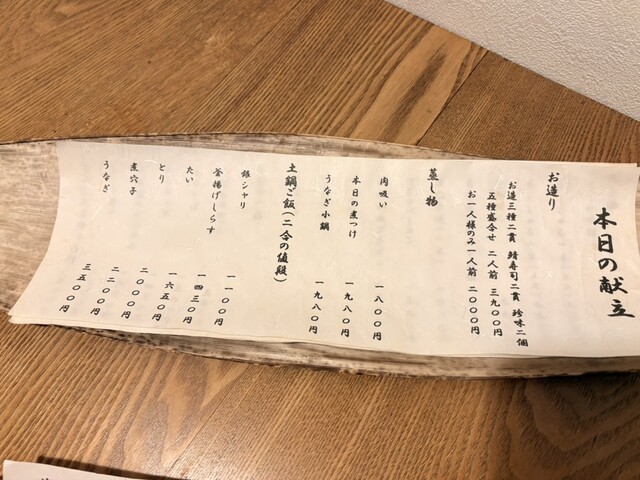 本日の献立
お造り
お造三種二貫 鯖寿司二貫 珍味二個
五種盛合せ 二人前 三九〇〇円
お一人様のみ一人前 二〇〇〇円
蒸し物
肉吸い 一八〇〇円
本日の煮つけ 一九八〇円
うなぎ小鍋 一九八〇円
土鍋ご飯(二合の値段)
銀シャリ 一一〇〇円
釜揚げしらす 一四三〇円
たい 一六五〇円
とり 二〇〇〇円
煮穴子 二二〇〇円
うなぎ 三五〇〇円